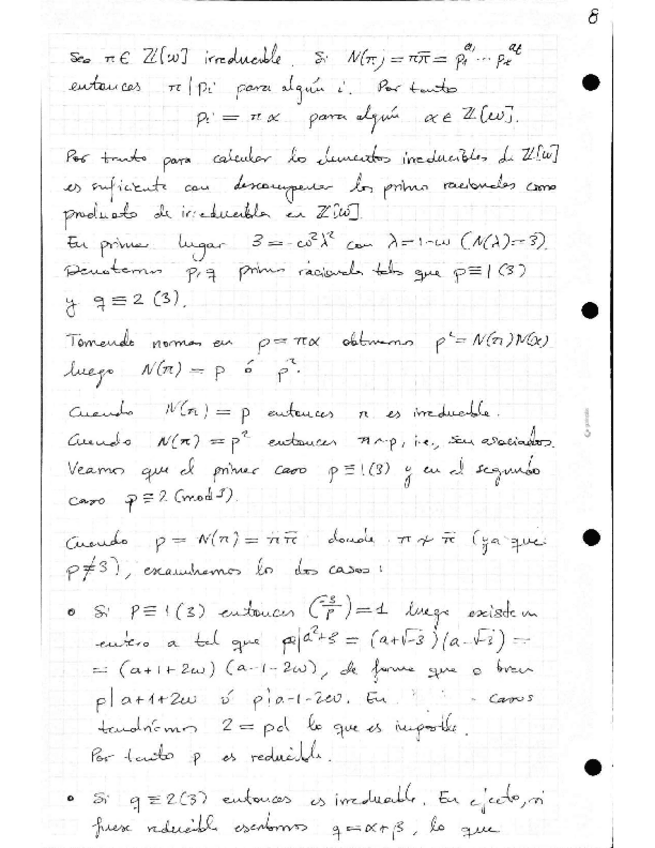 8
Sea π ∈ ℤ[ω] irreducible. Si N(π) = ππ̄ = p₁^a₁ ⋯ p_t^a_t
entonces π | pᵢ para algún i. Por tanto
pᵢ = πα para algún α ∈ ℤ[ω].
Por tanto para calcular los elementos irreducibles de ℤ[ω]
es suficiente con descomponer los primos racionales como
producto de irreducibles en ℤ[ω].
En primer lugar 3 = -ω²λ² con λ = 1-ω (N(λ) = 3).
Denotemos p, q primos racionales tales que p ≡ 1 (3)
y q ≡ 2 (3).
Tomando normas en p = πα obtenemos p² = N(π)N(α)
luego N(π) = p ó p².
Cuando N(π) = p entonces π es irreducible.
Cuando N(π) = p² entonces π ~ p, i.e., son asociados.
Veamos que el primer caso p ≡ 1 (3) y en el segundo
caso p ≡ 2 (mod 3).
Cuando p = N(π) = ππ̄ donde π ≁ π̄ (ya que
p ≠ 3), examinemos los dos casos:
• Si p ≡ 1 (3) entonces (-3/p) = 1 luego existe un
entero a tal que p | a²+3 = (a+√-3)(a-√-3) =
= (a+1+2ω)(a-1-2ω), de forma que o bien
p | a+1+2ω ó p | a-1-2ω. En casos
tendríamos 2 = pd lo que es imposible.
Por tanto p es reducible.
• Si q ≡ 2 (3) entonces es irreducible. En efecto, si
fuese reducible escribimos q = α+β, lo que